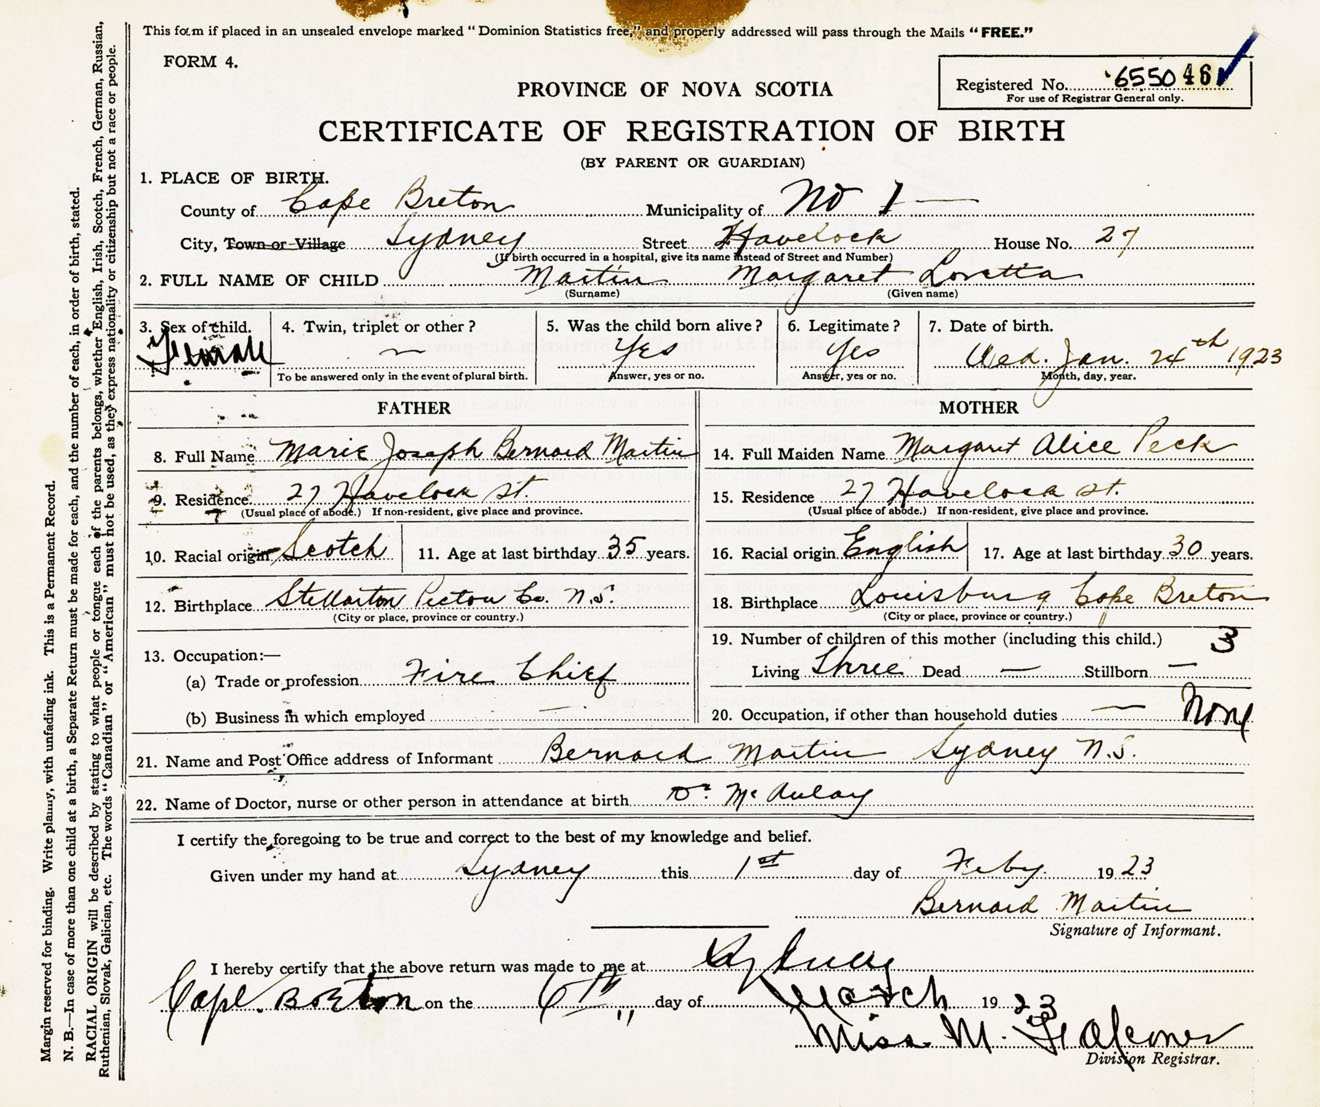 This form if placed in an unsealed envelope marked "Dominion Statistics free," and properly addressed will pass through the Mails "FREE."
FORM 4.
Registered No. 6550 461
For use of Registrar General only.
PROVINCE OF NOVA SCOTIA
CERTIFICATE OF REGISTRATION OF BIRTH
(BY PARENT OR GUARDIAN)
1. PLACE OF BIRTH.
County of Cape Breton Municipality of No 1
City, Town or Village Sydney Street Havelock House No. 27
(If birth occurred in a hospital, give its name instead of Street and Number)
2. FULL NAME OF CHILD Martin Margaret Loretta
(Surname) (Given name)
3. Sex of child. 4. Twin, triplet or other? 5. Was the child born alive? 6. Legitimate? 7. Date of birth.
Female — Yes Yes Wed. Jan. 24th 1923
To be answered only in the event of plural birth. Answer, yes or no. Answer, yes or no. Month, day, year.
FATHER MOTHER
8. Full Name Marie Joseph Bernard Martin 14. Full Maiden Name Margaret Alice Peck
9. Residence 27 Havelock St. 15. Residence 27 Havelock St.
(Usual place of abode.) If non-resident, give place and province. (Usual place of abode.) If non-resident, give place and province.
10. Racial origin Scotch 11. Age at last birthday 35 years. 16. Racial origin English 17. Age at last birthday 30 years.
12. Birthplace Stellarton Pictou Co. N.S. 18. Birthplace Louisburg Cape Breton
(City or place, province or country.) (City or place, province or country.)
13. Occupation:— 19. Number of children of this mother (including this child.) 3
(a) Trade or profession Fire Chief Living Three Dead — Stillborn —
(b) Business in which employed — 20. Occupation, if other than household duties — None
21. Name and Post Office address of Informant Bernard Martin Sydney N.S.
22. Name of Doctor, nurse or other person in attendance at birth Dr. McAulay
I certify the foregoing to be true and correct to the best of my knowledge and belief.
Given under my hand at Sydney this 1st day of Feby. 1923
Bernard Martin
Signature of Informant.
I hereby certify that the above return was made to me at Sydney
Cape Breton on the 6th day of March 1923
Miss M. Falconer
Division Registrar.
Margin reserved for binding. Write plainly, with unfading ink. This is a Permanent Record.
N. B.—In case of more than one child at a birth, a Separate Return must be made for each, and the number of each, in order of birth, stated.
RACIAL ORIGIN will be described by stating to what people or tongue each of the parents belongs, whether English, Irish, Scotch, French, German, Russian,
Ruthenian, Slovak, Galician, etc. The words "Canadian" or "American" must not be used, as they express nationality or citizenship but not a race or people.